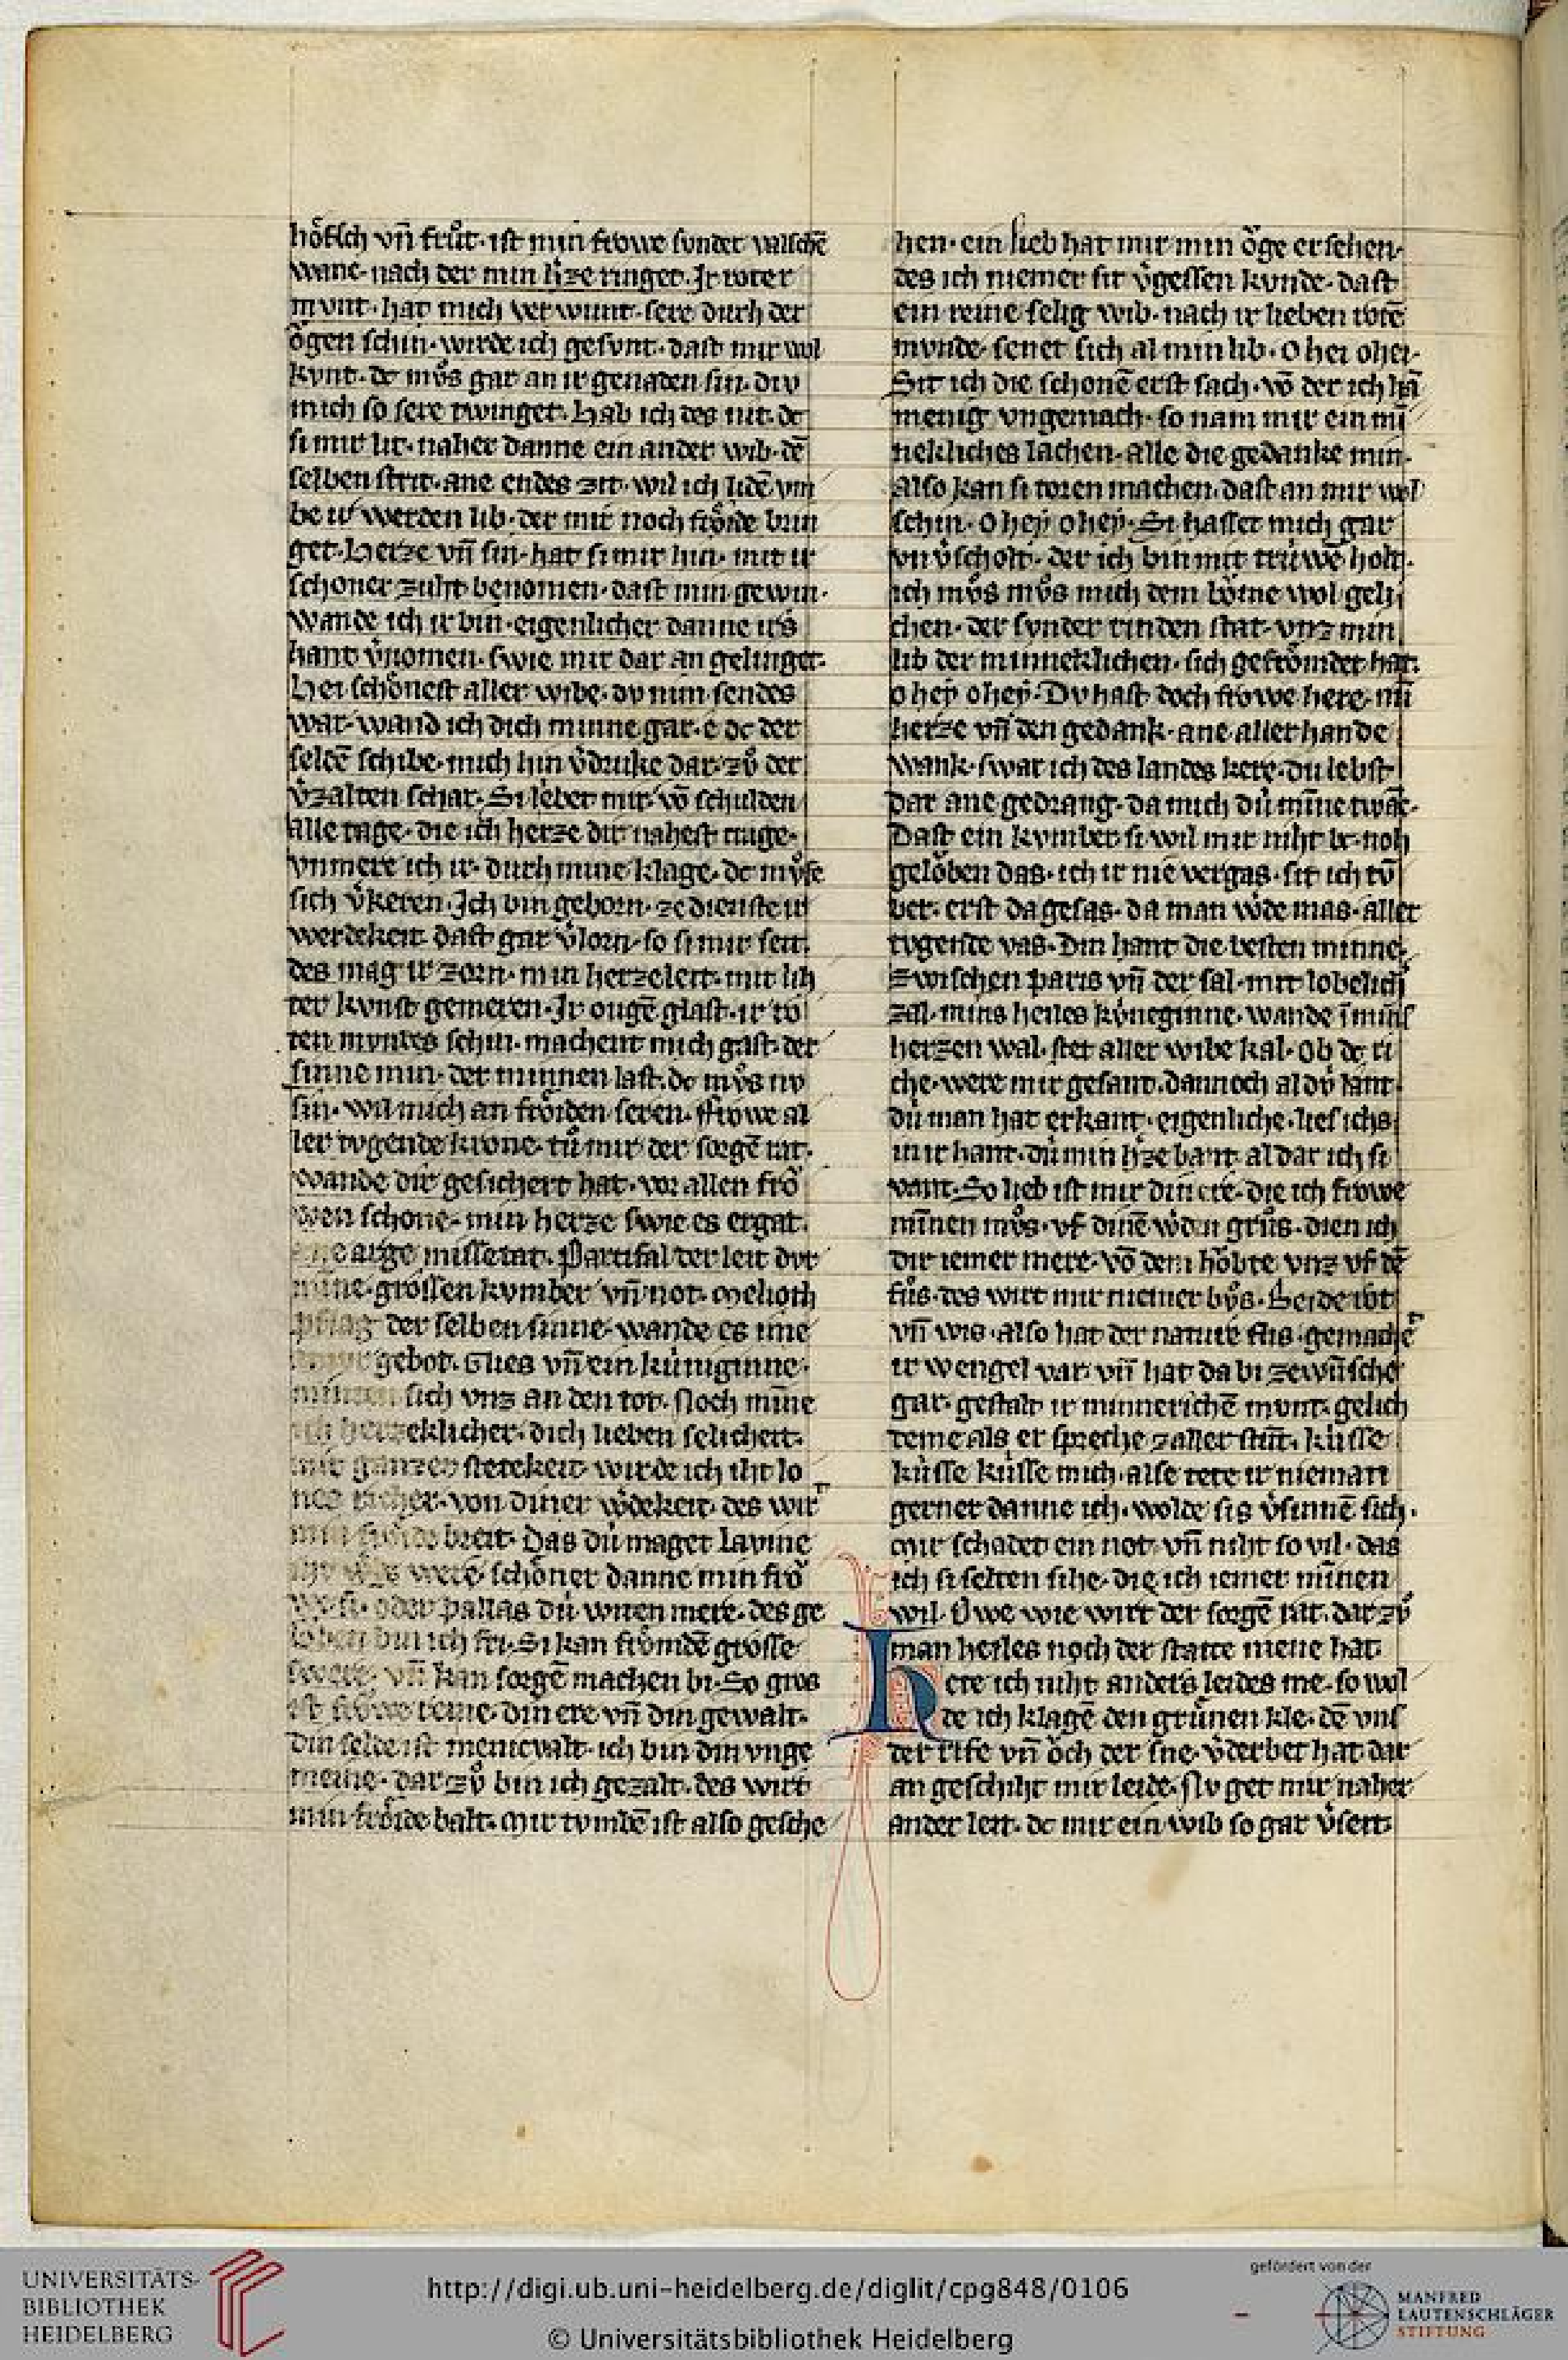 höfsch vn̄ frůt· ist min frowe svnder valschē
wanc· nach der min h̾ze ringet· Jr roter
mvnt· hat mich verwunt· sere durh der
ögen schin· wirde ich gesvnt· dast mir wol
kvnt· dc mv̊s gar an ir genaden sin· div
mich so sere twinget· hab ich des nit· dc
si mir lit· naher danne ein ander wib· dē
selben strit· ane endes zit· wil ich lidē vm
be ir werden lib· der mir noch fröide brin
get· Herze vn̄ sin· hat si mir hin· mit ir
schoner zuht benomen· dast min gewin·
wande ich ir bin· eigenlicher danne irs
hant v̾nomen· swie mir dar an gelinget·
Hei schönest aller wibe· dv min sendes
war· wand ich dich minne gar· e dc der
seldē schibe· mich hin v̾druke dar· zv̊ der
v̾zalten schar· Si lebet mir· vō schulden
alle tage· die ich herze dir nahest trage·
vnmere ich ir· durch mine klage· dc mv̊se
sich v̾keren· Jch bin geborn· ze dienste ir
werdekeit· dast gar v̾lorn· so si mir seit·
des mag ir zorn· min herzeleit· mit lih
ter kvnst gemeren· Jr ougē glast· ir ro
ten mvndes schin· machent mich gast· der
sinne min· der minnen last· dc mv̊s nv
sin· wil mich an fröiden seren· Frowe al
ler tvgende krone· tů mir der sorgē rat·
wande dir gesichert hat· vor allen frö
wen schone· min herze swie es ergat·
ane arge missetat· Partifal der leit dvr
minne· grössen kvmber vn̄ not· melioth
pflag der selben sinne· wande es ime
amvr gebot· Glies vn̄ ein küniginne·
minten sich vnz an den tot· Noch mīne
ich herzeklicher· dich lieben selicheit·
mit ganzer stetekeit· wirde ich iht lo
nes richer· von diner w̾dekeit· des wirt
min fröide breit· Das dü maget Lavine
were· schöner danne min frö
we si· oder pallas dü witen mere· des ge
loben bin ich fri· Si kan frömdē grosse
swere· vn̄ kan sorgē machen bi· So gros
ist frowe reine· din ere vn̄ din gewalt·
din selde ist menicvalt· ich bin din vnge
meine· dar zv̊ bin ich gezalt· des wirt
min fröide balt· Mir tvmbē ist also gesche
hen· ein lieb hat mir min öge ersehen·
des ich niemer sit v̾gessen kvnde· dast
ein reine selig wib· nach ir lieben rotē
mvnde· senet sich al min lib· o hei ohei·
Sit ich die schonē erst sach· vō der ich hā
menig vngemach· so nam mir ein mī
nekliches lachen· alle die gedanke min·
also kan si toren machen· dast an mir wol
schin· o hey ohey· Si hasset mich gar
vn v̾scholt· der ich bin mit trüwē holt·
ich mv̊s mv̊s mich dem böme wol geli
chen· der svnder rinden stat· vnz min
lib der minneklichen· sich gefrömdet hat·
o hey ohey· Dv hast doch frowe here· mī
herze vn̄ den gedank· ane aller hande
wank· swar ich des landes kere· du lebst
dar ane gedrang· da mich dü mīne twāc·
Dast ein kvmber si wil mir niht bc· noh
gelöben das· ich ir nie vergas· sit ich tv̄
ber· erst da gesas· da man w̾de mas· aller
tvgende vas· Din hant die besten minne·
zwischen paris vn̄ der sal· mit lobelich̾
zal· mins heiles küneginne· wande ī mīs
herzen wal· stet aller wibe kal· Ob dc ri
che· were mir gesant· dannoch al dv̾ lant·
dü man hat erkant· eigenliche· lies ichs
mir hant· dü min h̾ze bant· al dar ich si
vant· So lieb ist mir din ere· die ich frowe
mīnen mv̊s· vf dinē w̾den grůs· dien ich
dir iemer mere· vō dem höbte vnz vf dē
fůs· des wirt mir niemer bv̊s· Beide rot
vn̄ wis· also hat der nature flis· gemachet
ir wengel var· vn̄ hat da bi zewn̄sche
gar· gestalt ir minnerichē mvnt· gelich
reme als er spreche zaller stūt· küsse
küsse küsse mich· alse tete ir nieman
gerner danne ich· wolde sis v̾sinnē sich·
Mir schadet ein not· vn̄ niht so vil· das
ich si selten sihe· die ich iemer mīnen
wil· Owe wie wirt der sorgē rat· dar zv̊
man heiles noch der state niene hat·
Hete ich niht anders leides me· so wol
de ich klagē den grünen kle· dē vns
der rife vn̄ öch der sne· v̾derbet hat· dar
an geschiht mir leide· Nv get mir naher
ander leit· dc mir ein wib so gar v̾seit·
UNIVERSITÄTS-
BIBLIOTHEK
HEIDELBERG
http://digi.ub.uni-heidelberg.de/diglit/cpg848/0106
© Universitätsbibliothek Heidelberg
gefördert von der
MANFRED
LAUTENSCHLÄGER
STIFTUNG